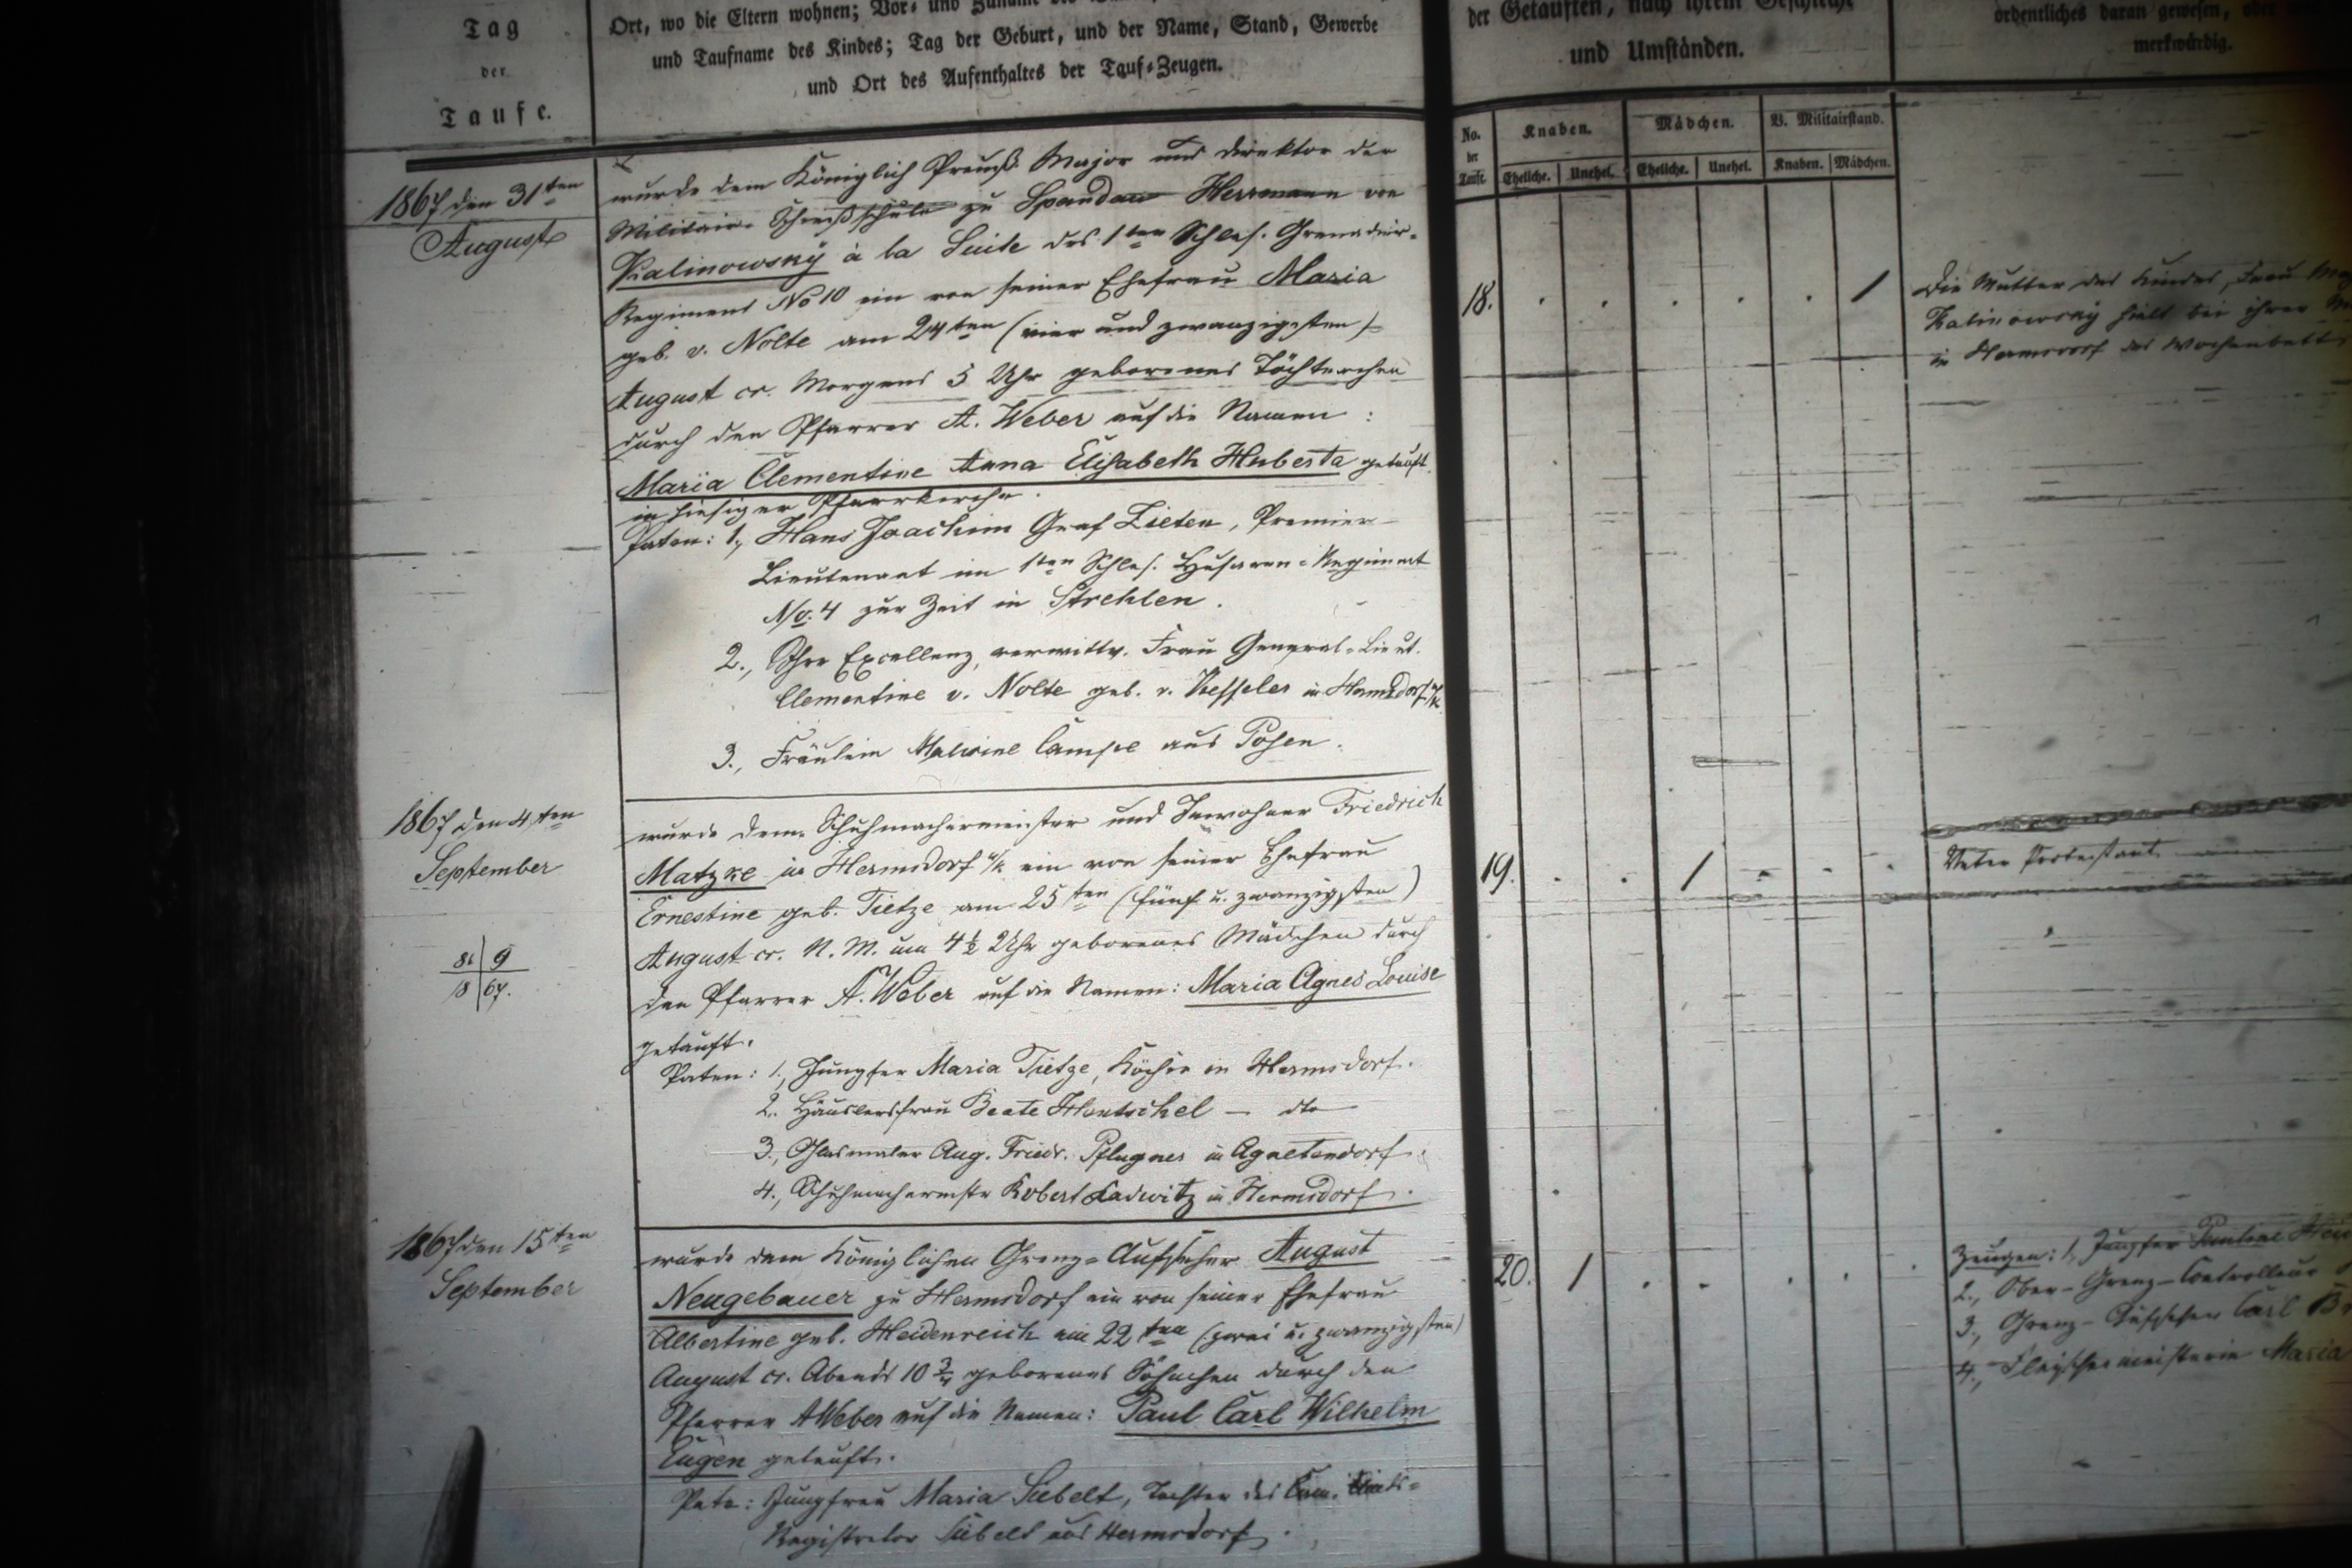 Tag
der
Taufe.
Ort, wo die Eltern wohnen; Vor- und Zuname
und Taufname des Kindes; Tag der Geburt, und der Name, Stand, Gewerbe
und Ort des Aufenthaltes der Tauf-Zeugen.
der Getauften, nach ihrem Geschlecht
und Umständen.
ordentliches daran gewesen, oder
merkwürdig.
No. der Taufe
Knaben.
Mädchen.
V. Militairstand.
Eheliche. Unehel. Eheliche. Unehel. Knaben. Mädchen.
1867 den 31ten
August
wurde dem Königlich Preuß. Major und Direktor der
Militair-Schießschule zu Spandau Herrmann von
Kalinowsky à la Suite des 1ten Schles. Grenadier-
Regiment No 10 ein von seiner Ehefrau Maria
geb. v. Nolte am 24ten (vier und zwanzigsten)
August cr. Morgens 5 Uhr geborenes Töchterchen
durch den Pfarrer A. Weber auf die Namen:
Maria Clementine Anna Elisabeth Huberta getauft.
in hiesiger Pfarrkirche.
Paten: 1., Hans Joachim Graf Zieten, Premier-
Lieutenant im 1ten Schles. Husaren-Regiment
No. 4 zur Zeit in Strehlen.
2., Ihre Excellenz, verwittw. Frau General-Lieut.
Clementine v. Nolte geb. v. Kessler in Hermsdorf u/K.
3., Fräulein Malwine Campe aus Posen.
18. 1
Die Mutter des Kindes, Frau
Kalinowsky hielt bei ihrer
in Hermsdorf das Wochenbett
1867 den 4ten
September
9
18 67.
wurde dem Schuhmachermeister und Inwohner Friedrich
Matzke in Hermsdorf u/K ein von seiner Ehefrau
Ernestine geb. Tietze am 25ten (fünf u. zwanzigsten)
August cr. N. M. um 4½ Uhr geborenes Mädchen durch
den Pfarrer A. Weber auf die Namen: Maria Agnes Louise
getauft.
Paten: 1., Jungfer Maria Tietze, Köchin in Hermsdorf.
2. Häuslersfrau Beate Hentschel — dto
3., Glasmaler Aug. Friedr. Pflugner in Agnetendorf.
4., Schuhmachermstr Robert Ladwitz in Hermsdorf.
19. 1
Vater Protestant
1867 den 15ten
September
wurde dem Königlichen Grenz-Aufseher August
Neugebauer zu Hermsdorf ein von seiner Ehefrau
Albertine geb. Heidenreich am 22ten (zwei u. zwanzigsten)
August cr. Abends 10¾ geborenes Söhnchen durch den
Pfarrer A Weber auf die Namen: Paul Carl Wilhelm
Eugen getauft.
Pate: Jungfrau Maria Siebelt, Tochter des Cam.
Registrator Siebelt aus Hermsdorf.
20. 1
Zeugen: 1., Jungfer Pauline
2., Ober-Grenz-Controlleur
3., Grenz-Aufseher Carl
4., Fleischermeisterin Maria